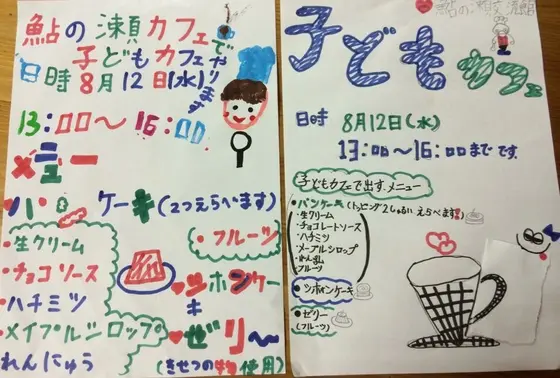 鮎の瀬カフェでやります
子どもカフェ
日時8月12日(水)
13:00〜16:00
メニュー
パンケーキ(2つえらべます)
・生クリーム
・フルーツ
・チョコソース
・ハチミツ
・メイプルシロップ
れんにゅう
♥シホンケーキ
♥ゼリ〜
(きせつの物使用)
鮎の瀬交流館
子どもカフェ
日時 8月12日(水)
13:00〜16:00までです.
子どもカフェで出すメニュー
・パンケーキ(トッピング2しゅるいえらべます)
・生クリーム
・チョコレートソース
・ハチミツ
・メープルシロップ
・れんにゅう
フルーツ
・シホォンケーキ
・ゼリー
(フルーツ)